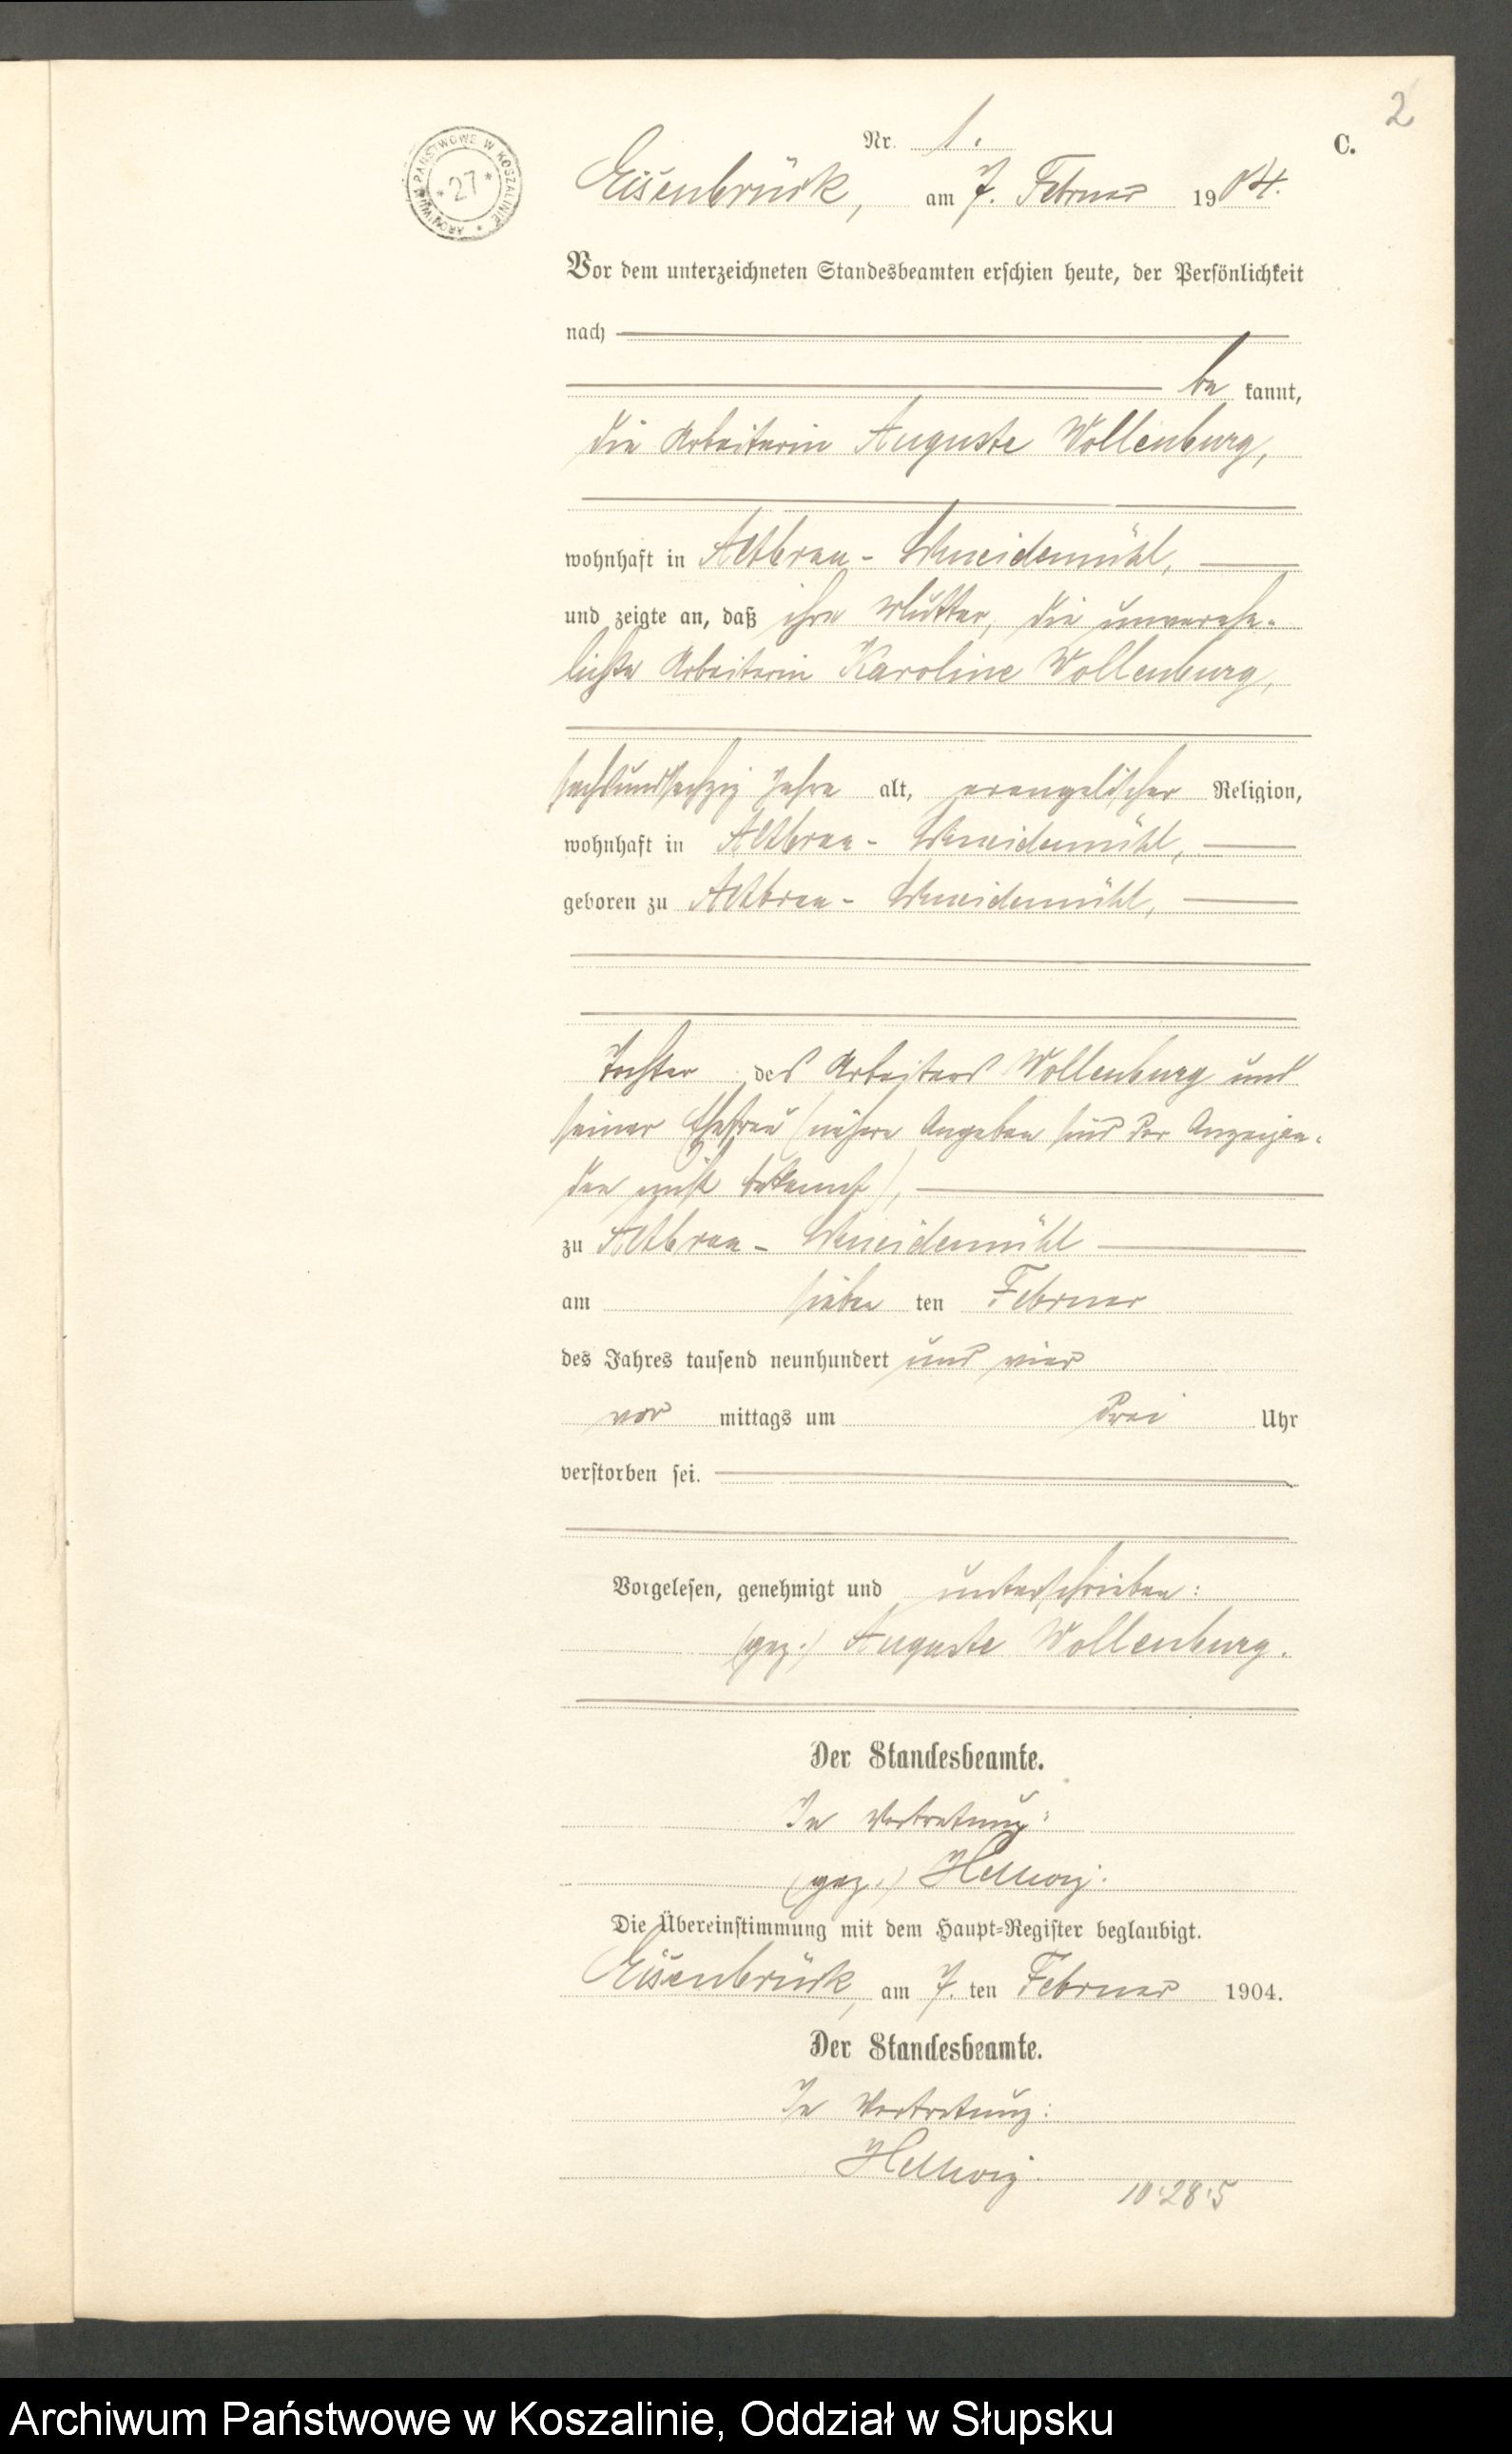 2
C.
ARCHIWUM PAŃSTWOWE W KOSZALINIE * 27 *
Nr. 1.
Eisenbrück, am 7. Februar 1904.
Vor dem unterzeichneten Standesbeamten erschien heute, der Persönlichkeit
nach
be kannt,
die Arbeiterin Auguste Wollenburg,
wohnhaft in Altbraa - Schneidemühl,
und zeigte an, daß ihre Mutter, die unverehe-
lichte Arbeiterin Karoline Wollenburg,
sechsundsechzig Jahre alt, evangelischer Religion,
wohnhaft in Altbraa - Schneidemühl,
geboren zu Altbraa - Schneidemühl,
Tochter des Arbeiters Wollenburg und
seiner Ehefrau (nähere Angaben sind der Anzeigen-
den nicht bekannt),
zu Altbraa - Schneidemühl
am sieben ten Februar
des Jahres tausend neunhundert und vier
vor mittags um drei Uhr
verstorben sei.
Vorgelesen, genehmigt und unterschrieben:
(gez.) Auguste Wollenburg.
Der Standesbeamte.
In Vertretung:
(gez.) Hellwig.
Die Übereinstimmung mit dem Haupt-Register beglaubigt.
Eisenbrück, am 7. ten Februar 1904.
Der Standesbeamte.
In Vertretung:
Hellwig.
10:28:5
Archiwum Państwowe w Koszalinie, Oddział w Słupsku